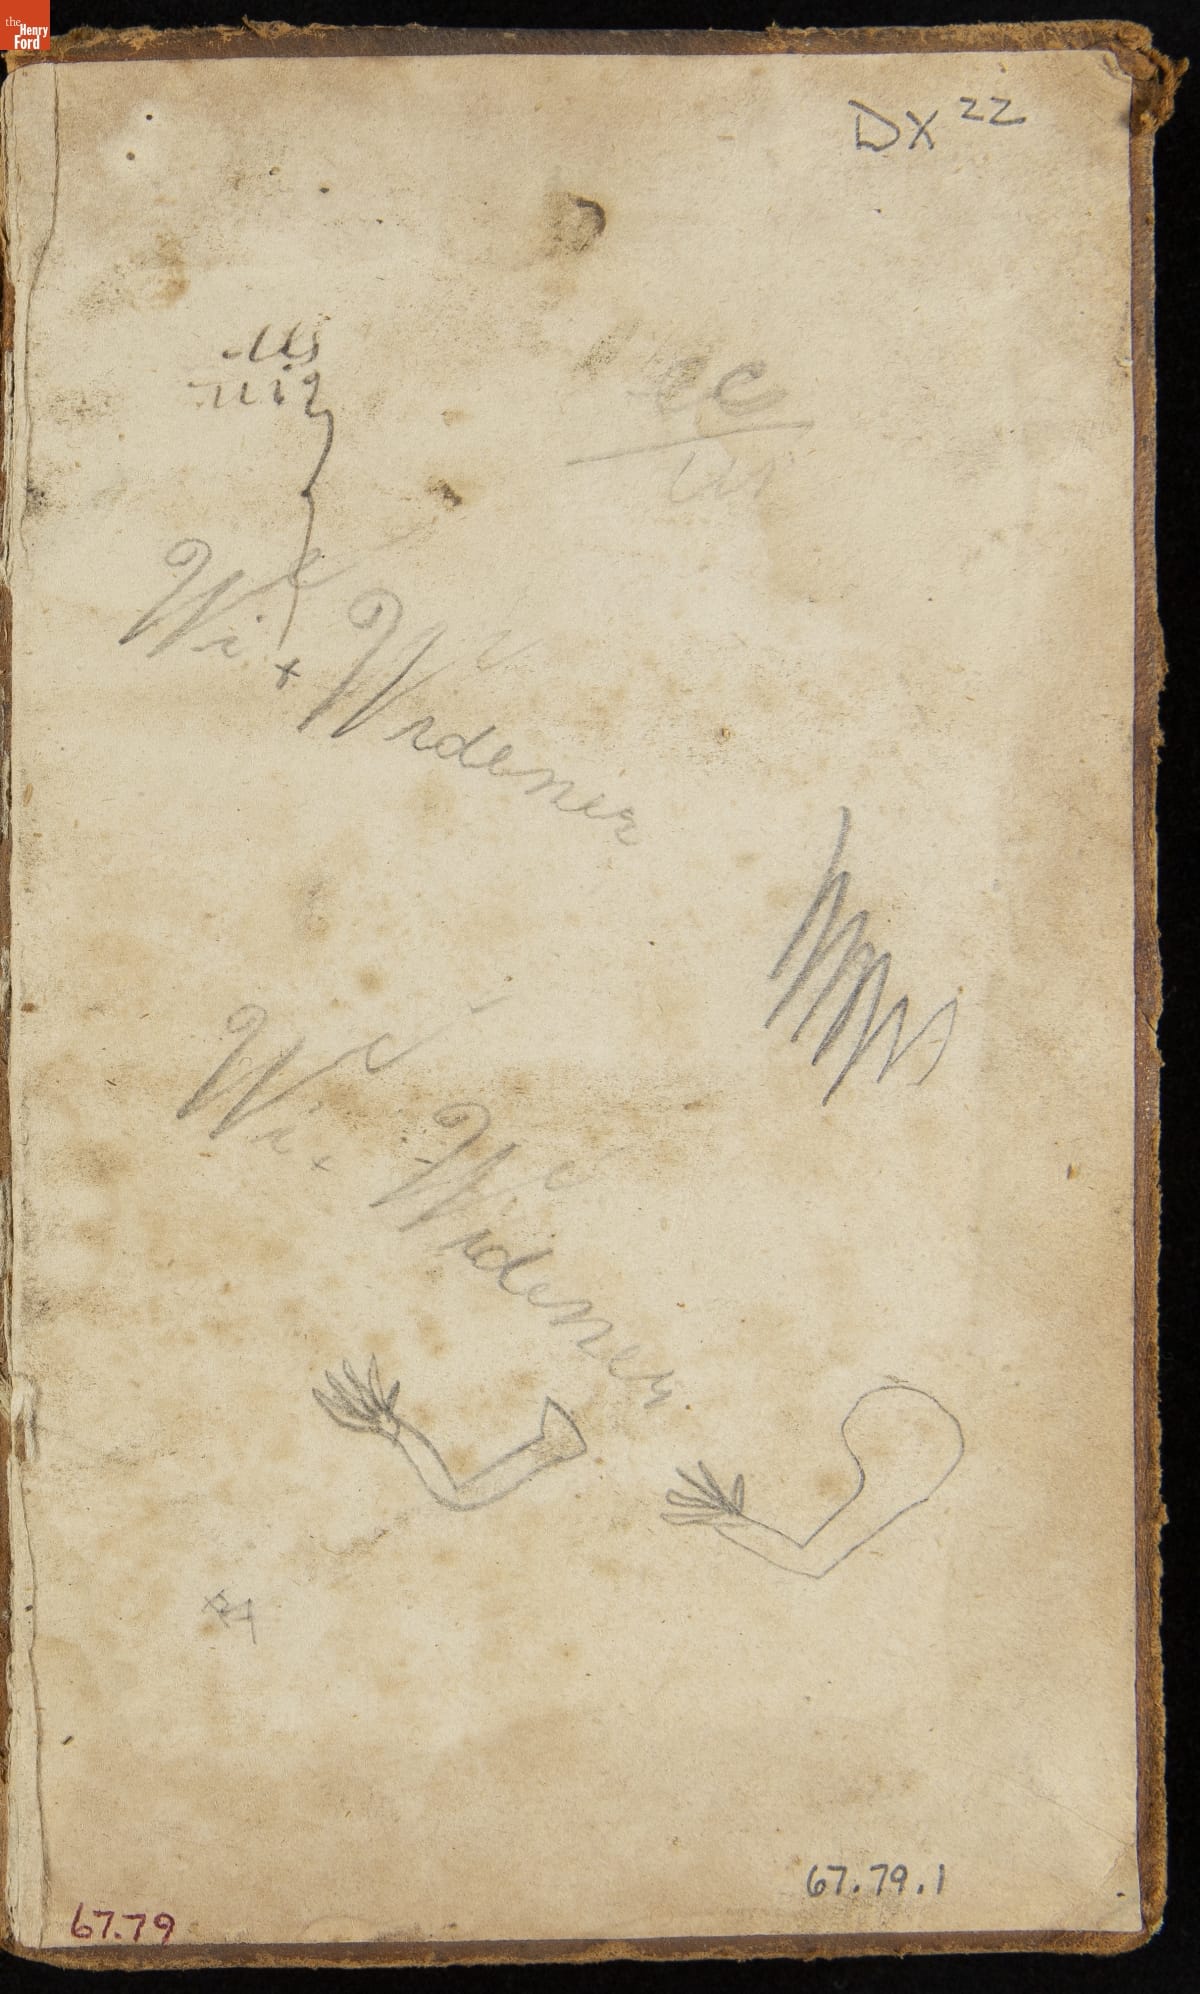 the Henry Ford
DX 22
Wi x Widener
Wi x Widener
67.79.1
67.79